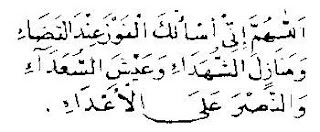 اَللّٰهُمَّ اِنِّىْ أَسْأَلُكَ الْفَوْزَ عِنْدَ الْقَضَاءِ
وَمَنَازِلَ الشُّهَدَاءِ وَعَيْشَ السُّعَدَآءِ
وَالنَّصْرَ عَلَى الْأَعْدَاءِ .